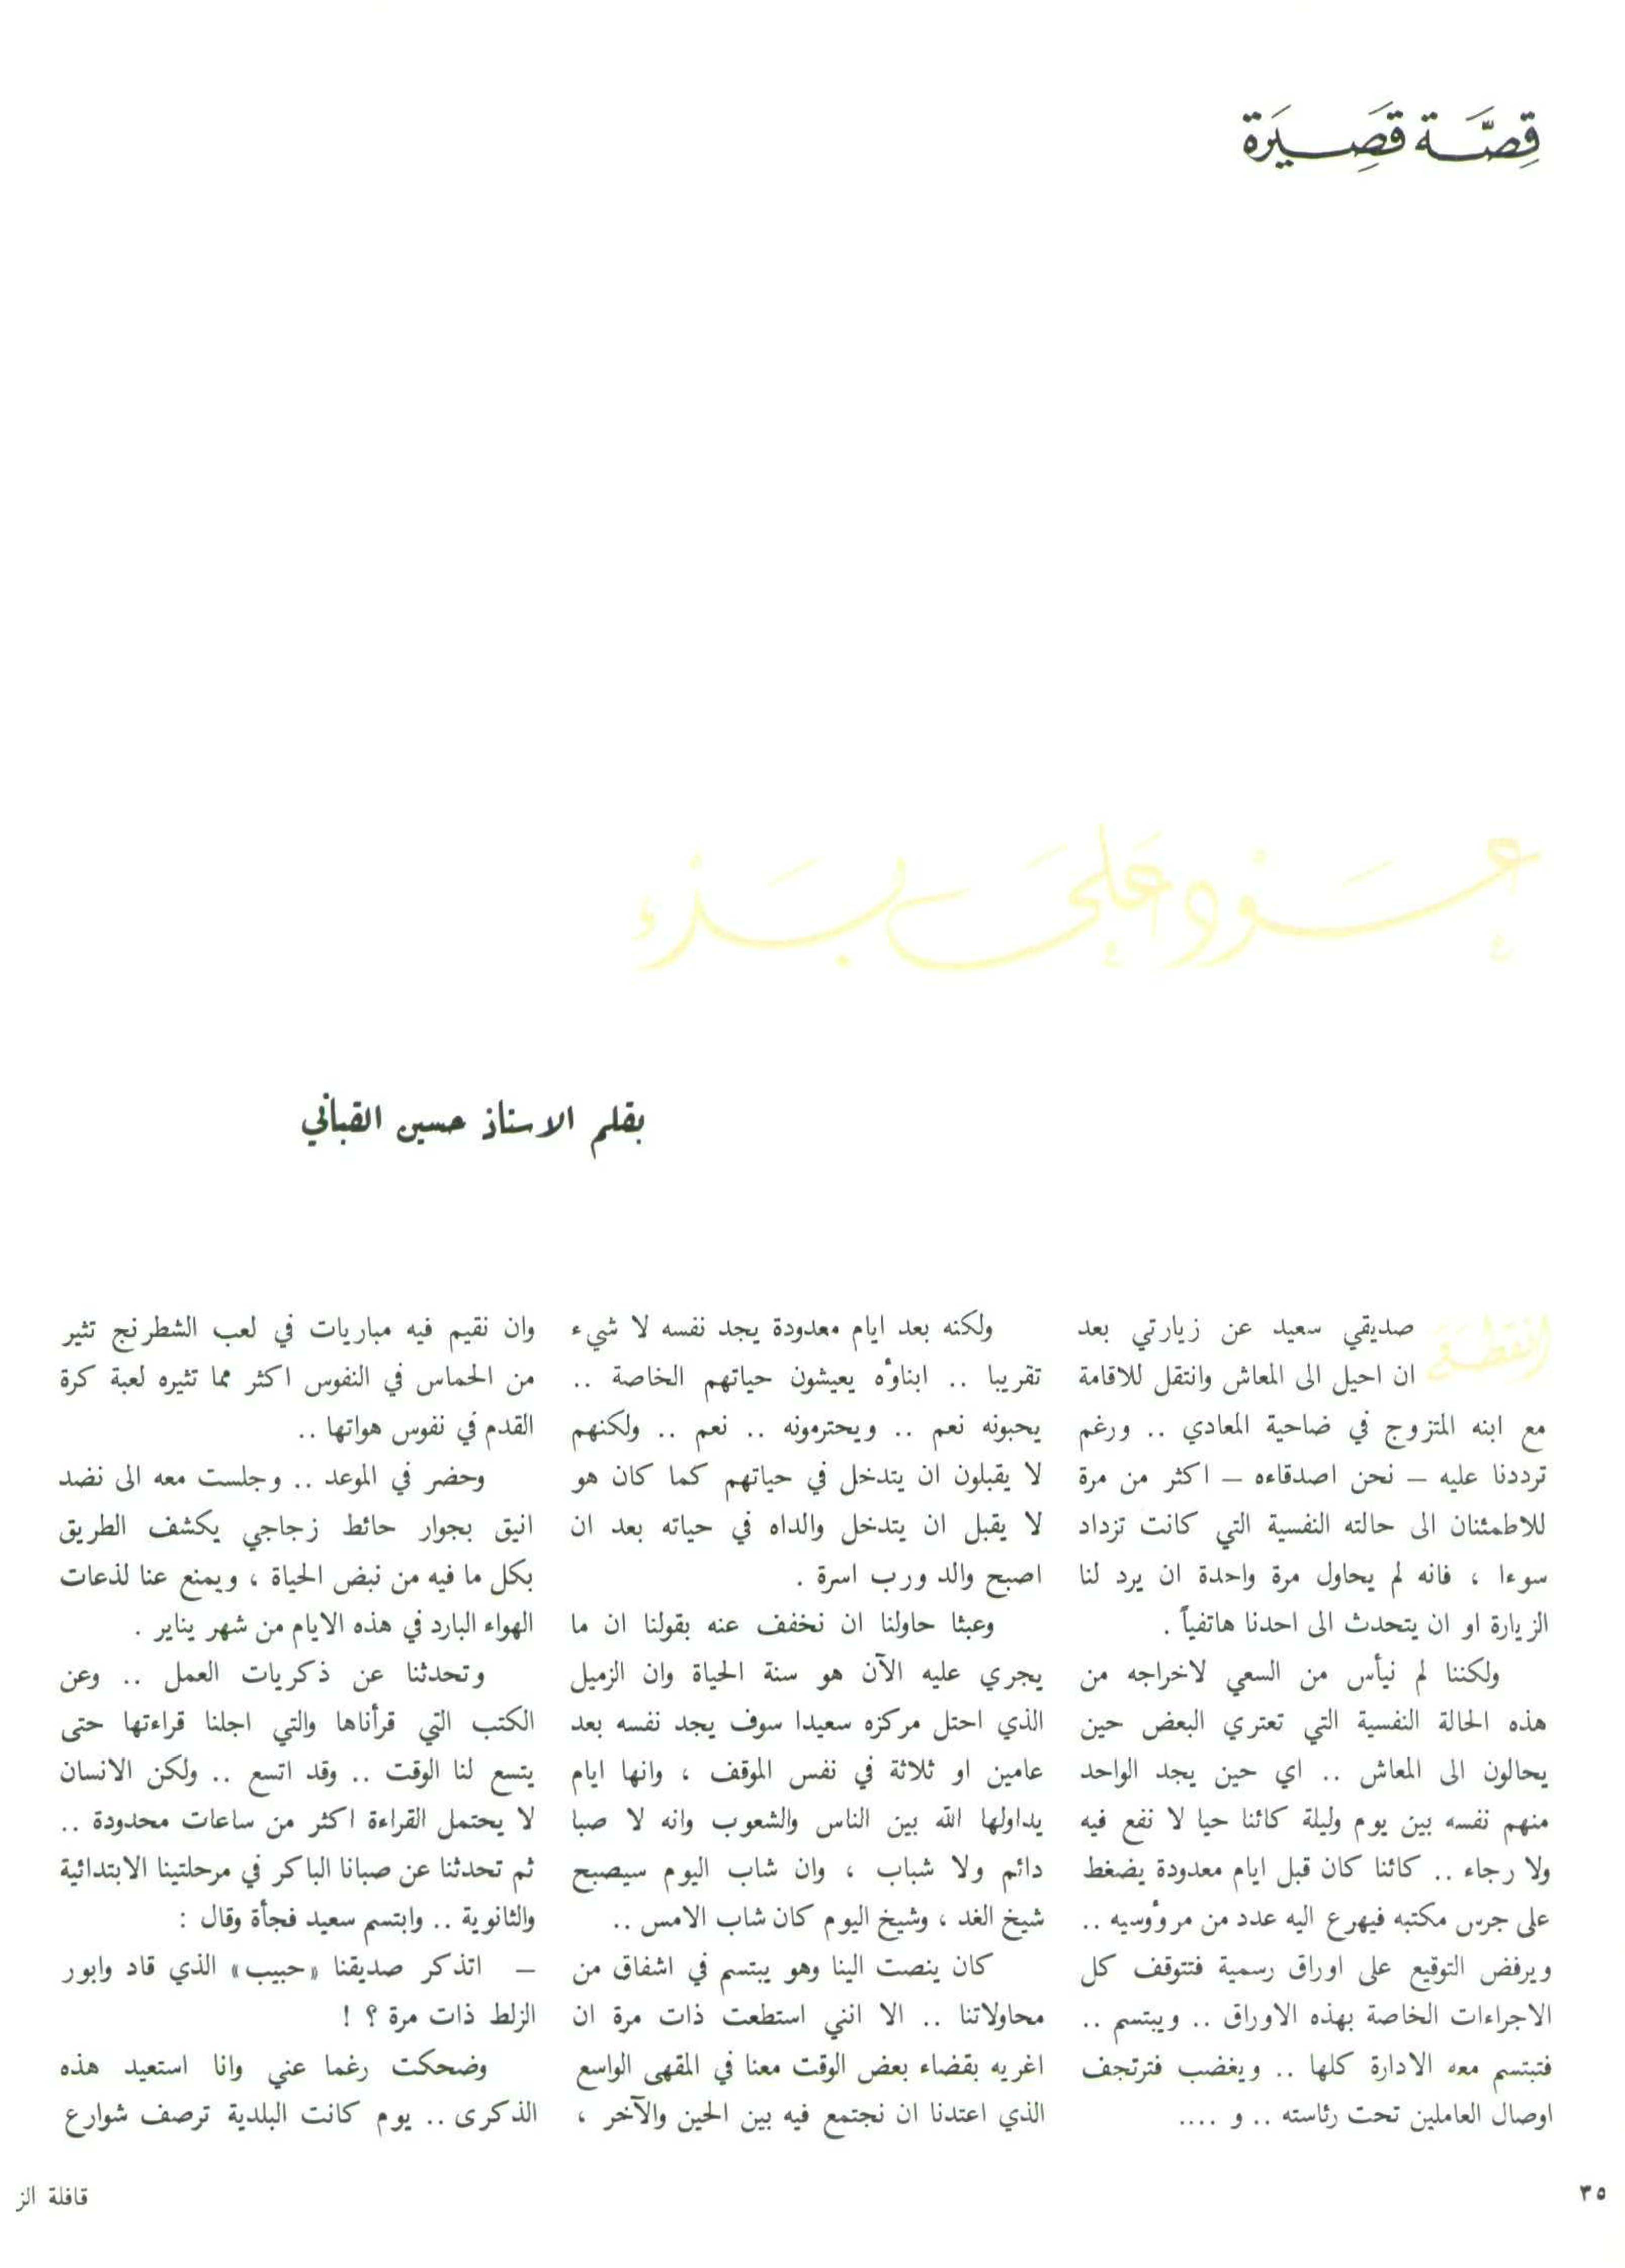 قِصَّة قَصِيَرة
عَود عَلى بَدء
بقلم الاستاذ حسين القباني
انقطع صديقي سعيد عن زيارتي بعد
ان احيل الى المعاش وانتقل للاقامة
مع ابنه المتزوج في ضاحية المعادي .. ورغم
ترددنا عليه — نحن اصدقاءه — اكثر من مرة
للاطمئنان الى حالته النفسية التي كانت تزداد
سوءا ، فانه لم يحاول مرة واحدة ان يرد لنا
الزيارة او ان يتحدث الى احدنا هاتفياً .
ولكننا لم نيأس من السعي لاخراجه من
هذه الحالة النفسية التي تعتري البعض حين
يحالون الى المعاش .. اي حين يجد الواحد
منهم نفسه بين يوم وليلة كائنا حيا لا نفع فيه
ولا رجاء .. كائنا كان قبل ايام معدودة يضغط
على جرس مكتبه فيهرع اليه عدد من مرؤوسيه ..
ويرفض التوقيع على اوراق رسمية فتتوقف كل
الاجراءات الخاصة بهذه الاوراق .. ويبتسم ..
فتبتسم معه الادارة كلها .. ويغضب فترتجف
اوصال العاملين تحت رئاسته .. و ....
ولكنه بعد ايام معدودة يجد نفسه لا شيء
تقريبا .. ابناؤه يعيشون حياتهم الخاصة ..
يحبونه نعم .. ويحترمونه .. نعم .. ولكنهم
لا يقبلون ان يتدخل في حياتهم كما كان هو
لا يقبل ان يتدخل والداه في حياته بعد ان
اصبح والد ورب اسرة .
وعبثا حاولنا ان نخفف عنه بقولنا ان ما
يجري عليه الآن هو سنة الحياة وان الزميل
الذي احتل مركزه سعيدا سوف يجد نفسه بعد
عامين او ثلاثة في نفس الموقف ، وانها ايام
يداولها الله بين الناس والشعوب وانه لا صبا
دائم ولا شباب ، وان شاب اليوم سيصبح
شيخ الغد ، وشيخ اليوم كان شاب الامس ..
كان ينصت الينا وهو يبتسم في اشفاق من
محاولاتنا .. الا انني استطعت ذات مرة ان
اغريه بقضاء بعض الوقت معنا في المقهى الواسع
الذي اعتدنا ان نجتمع فيه بين الحين والآخر ،
وان نقيم فيه مباريات في لعب الشطرنج تثير
من الحماس في النفوس اكثر مما تثيره لعبة كرة
القدم في نفوس هواتها ..
وحضر في الموعد .. وجلست معه الى نضد
انيق بجوار حائط زجاجي يكشف الطريق
بكل ما فيه من نبض الحياة ، ويمنع عنا لذعات
الهواء البارد في هذه الايام من شهر يناير .
وتحدثنا عن ذكريات العمل .. وعن
الكتب التي قرأناها والتي اجلنا قراءتها حتى
يتسع لنا الوقت .. وقد اتسع .. ولكن الانسان
لا يحتمل القراءة اكثر من ساعات محدودة ..
ثم تحدثنا عن صبانا الباكر في مرحلتينا الابتدائية
والثانوية .. وابتسم سعيد فجأة وقال :
— اتذكر صديقنا «حبيب» الذي قاد وابور
الزلط ذات مرة ؟ !
وضحكت رغما عني وانا استعيد هذه
الذكرى .. يوم كانت البلدية ترصف شوارع
٣٥
قافلة الز